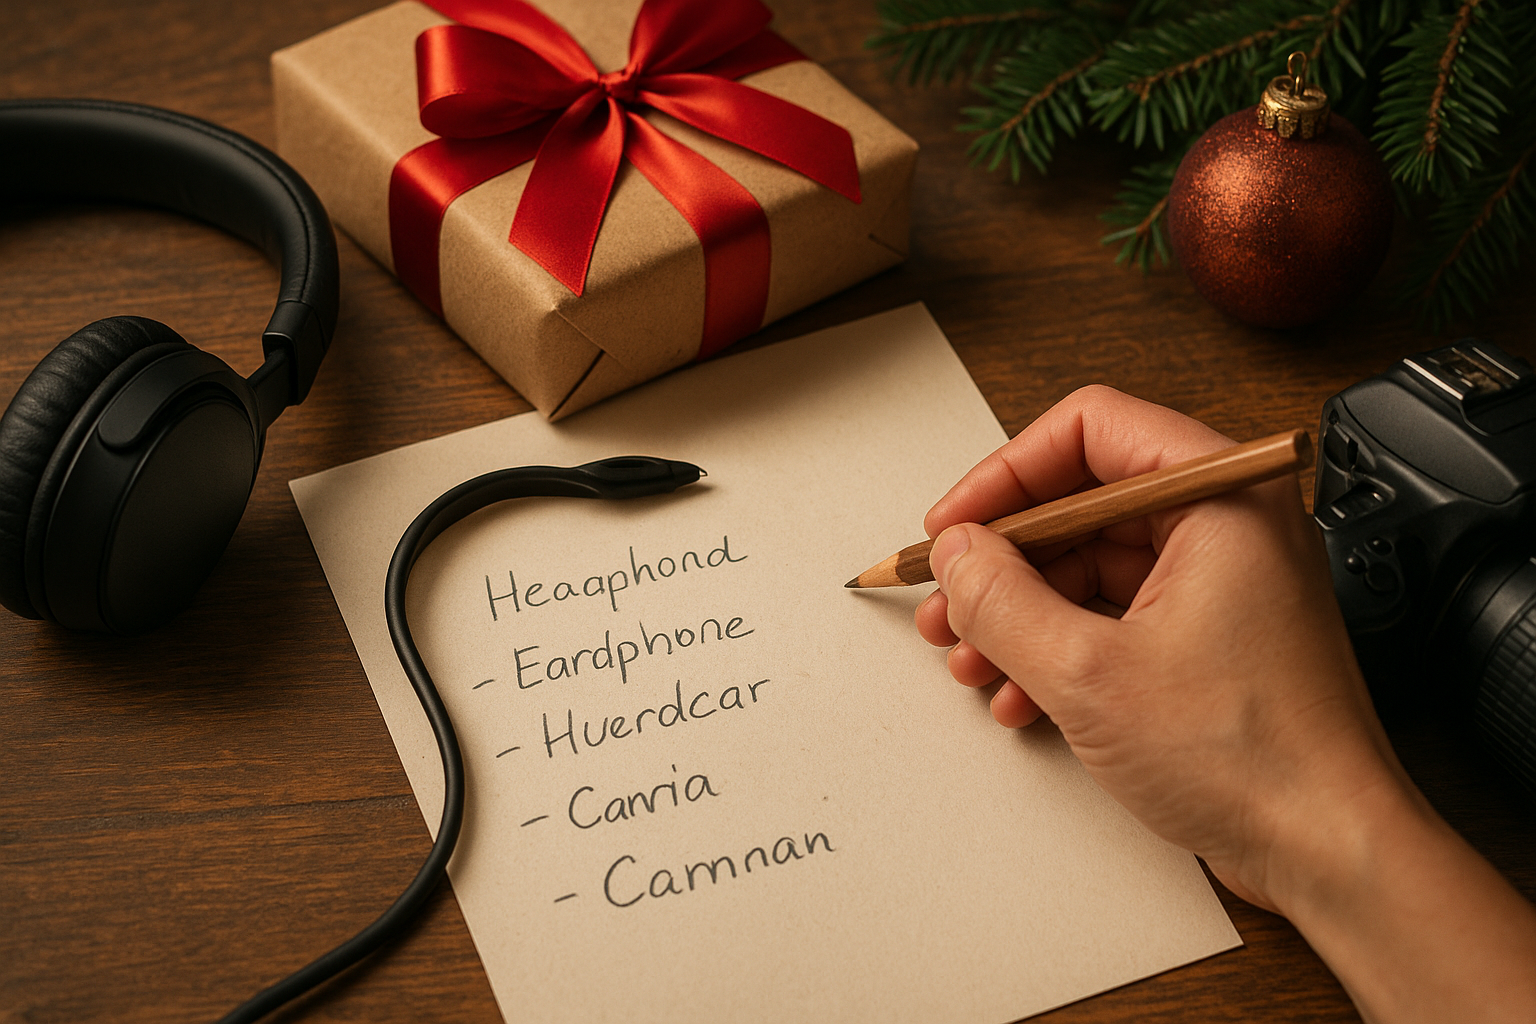 Heaaphond
- Eardphone
- Huerdcar
- Canria
- Camnan